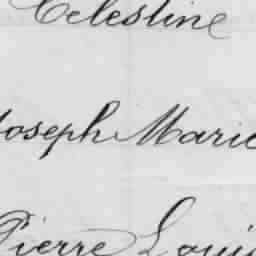 Celestine
Joseph Marie
Pierre Louis